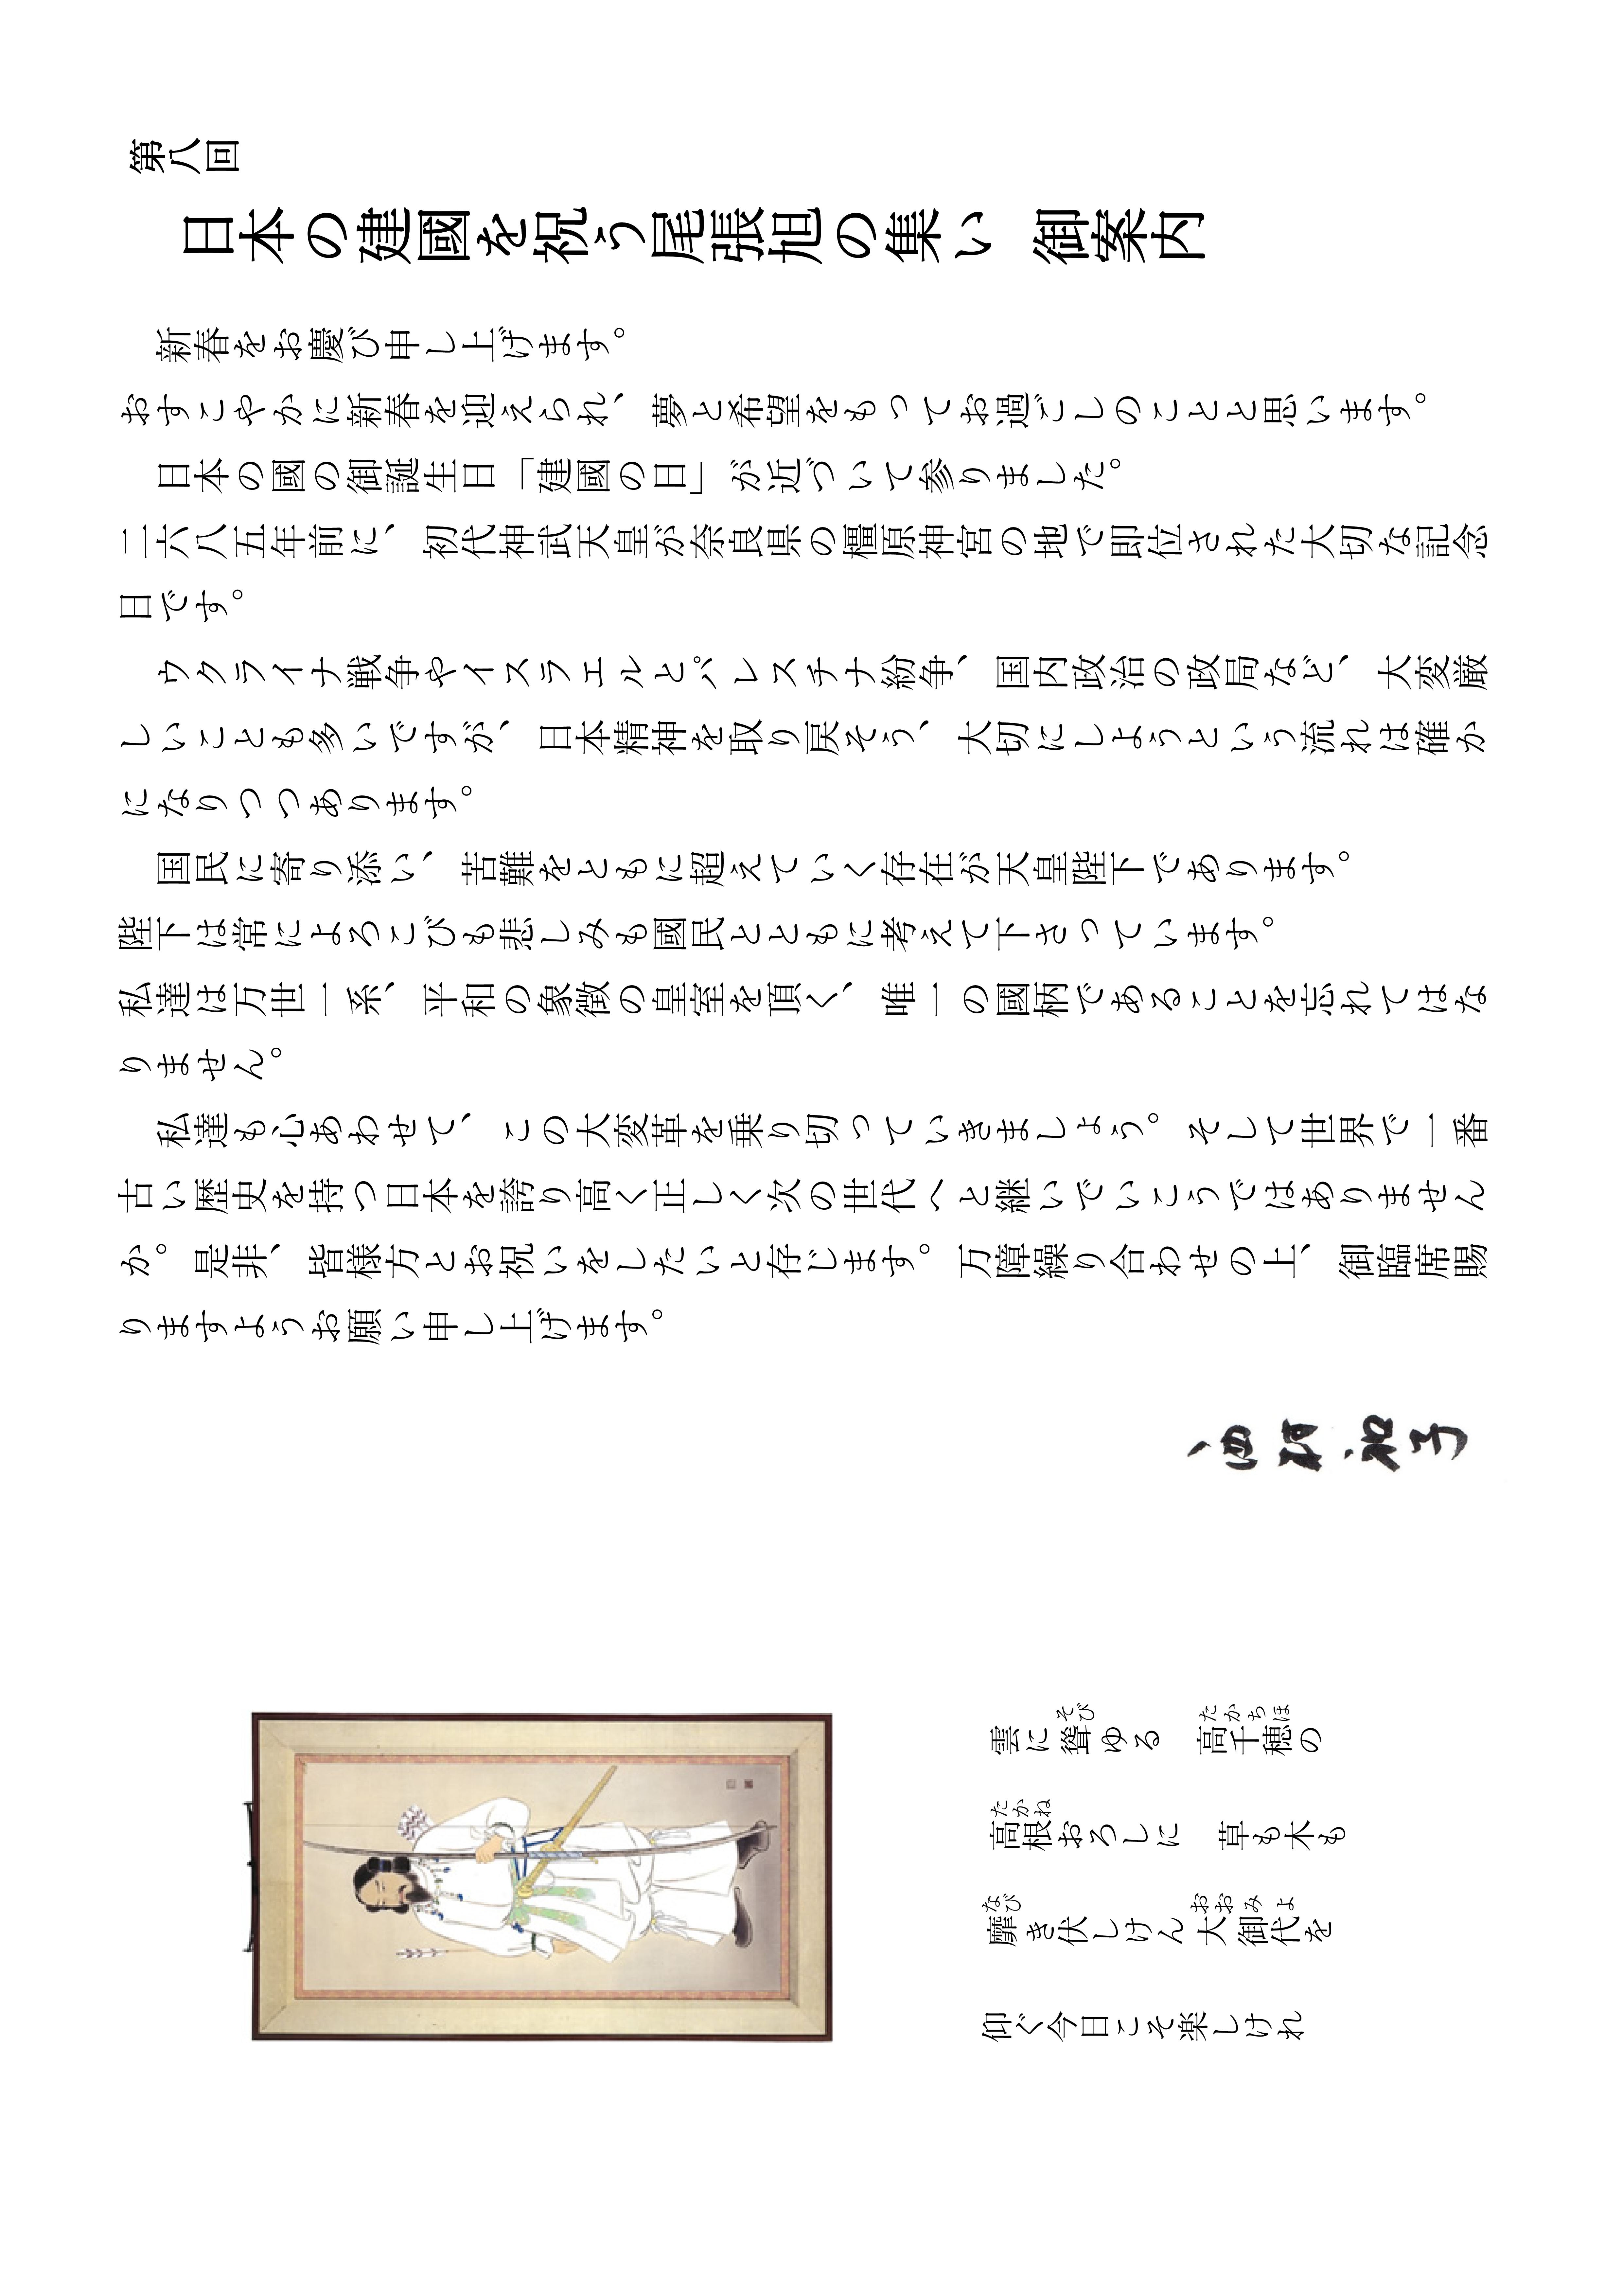 第八回
日本の建國を祝う尾張旭の集い 御案内
新春をお慶び申し上げます。
おすこやかに新春を迎えられ、夢と希望をもってお過ごしのことと思います。
日本の國の御誕生日「建國の日」が近づいて参りました。
二六八五年前に、初代神武天皇が奈良県の橿原神宮の地で即位された大切な記念
日です。
ウクライナ戦争やイスラエルとパレスチナ紛争、国内政治の政局など、大変厳
しいことも多いですが、日本精神を取り戻そう、大切にしようという流れは確か
になりつつあります。
国民に寄り添い、苦難をともに超えていく存在が天皇陛下であります。
陛下は常によろこびも悲しみも國民とともに考えて下さっています。
私達は万世一系、平和の象徴の皇室を頂く、唯一の國柄であることを忘れてはな
りません。
私達も心あわせて、この大変革を乗り切っていきましょう。そして世界で一番
古い歴史を持つ日本を誇り高く正しく次の世代へと継いでいこうではありません
か。是非、皆様方とお祝いをしたいと存じます。万障繰り合わせの上、御臨席賜
りますようお願い申し上げます。
雲に聳ゆる 高千穂の
高根おろしに 草も木も
靡き伏しけん大御代を
仰ぐ今日こそ楽しけれ